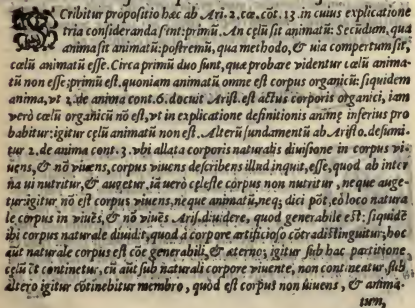 SCribitur propositio hæc ab Ari. 2. cæ. cõt. 13. in cuius explicatione
tria consideranda sint: primũ. An cęlũ sit animatũ: Secũdum, qua
anima sit animatũ: postremũ, qua methodo, & uia compertum sit,
cælũ animatũ esse. Circa primũ duo sunt, quæ probare videntur cælũ anima-
tũ non esse; primũ est, quoniam animatũ omne est corpus organicũ: siquidem
anima, vt 2. de anima cont. 6. docuit Arist. est actus corporis organici, iam
verò cælũ organicũ nõ est, vt in explicatione definitionis animę inferius pro
babitur: igitur cęlũ animatũ non est. Alterũ fundamentũ ab Aristo. desumi-
tur 2. de anima cont. 3. vbi allata corporis naturalis diuisione in corpus vi-
uens, & nõ viuens, corpus viuens describens illud inquit, esse, quod ab inter
na ui nutritur, & augetur, iã uerò cęleste corpus non nutritur, neque auge-
tur: igitur nõ est corpus viuens, neque animatũ, neq; dici põt, eò loco natura
le corpus in viuẽs, & nõ viuẽs Aris. diuidere, quod generabile est: siquidẽ
ibi corpus naturale diuidit, quod à corpore artificioso cõtradistinguitur; hoc
aũt naturale corpus est cõe generabili, & æterno; igitur sub hac partitione,
cęlũ ẽt continetur, cũ aũt sub naturali corpore viuente, non contineatur, sub
altero igitur cõtinebitur membro, quòd est corpus non uiuens, & anima-
tum,